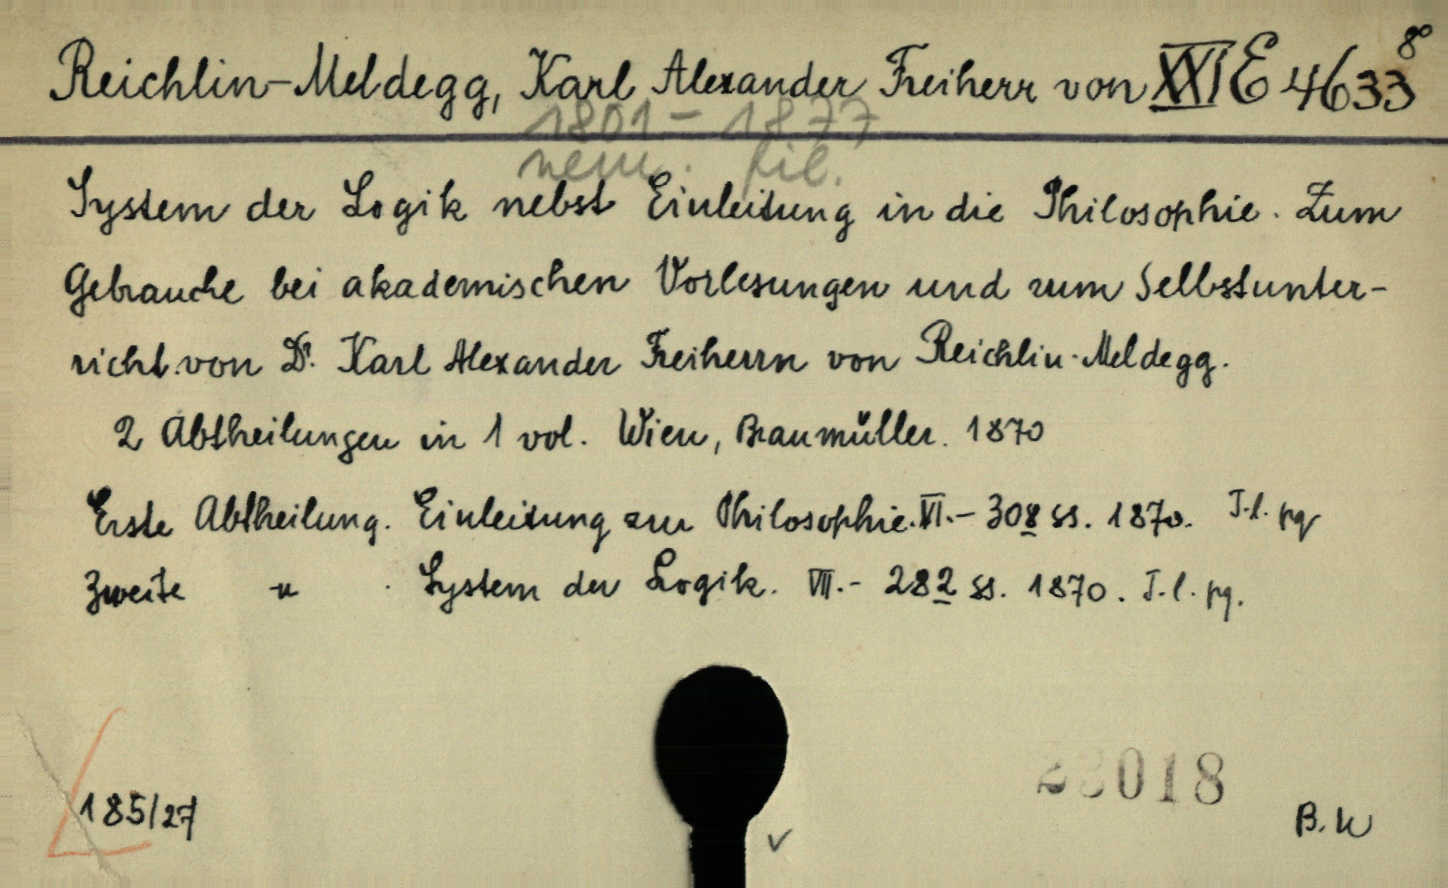 Reichlin-Meldegg, Karl Alexander Freiherr von XXI E 4633 8°
1801-1877
nem. fil.
System der Logik nebst Einleitung in die Philosophie. Zum
Gebrauche bei akademischen Vorlesungen und zum Selbstunter-
richt von Dr. Karl Alexander Freiherrn von Reichlin-Meldegg.
2 Abtheilungen in 1 vol. Wien, Braumüller. 1870
Erste Abtheilung. Einleitung zur Philosophie. VI.- 308 ss. 1870. T.l. pg
Zweite " . System der Logik. VII.- 282 ss. 1870. T.l. pg.
23018
185/27
B. W